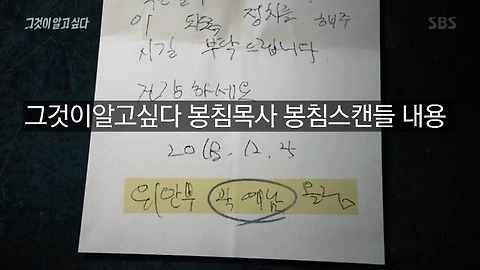 그것이 알고싶다
SBS
이 되도록 정치를 해주
시길 부탁드립니다
건강하세요
그것이알고싶다 봉침목사 봉침스캔들 내용
2018. 12. 5
위안부 곽예남 올림